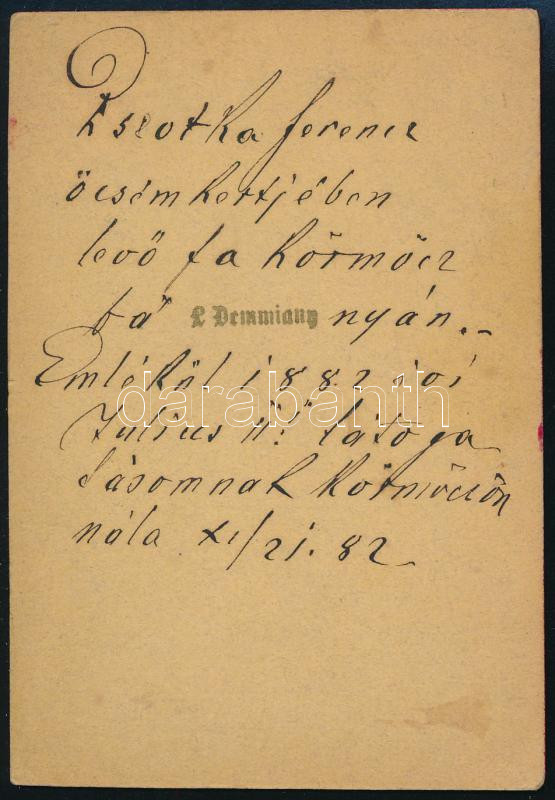 Pszotka ferencz
öcsém kertjében
levő fa Körmöcz
bá L Demmiany nyán.–
Emlékül 1882 ioi
Julius 11. látoga
tásomnak Körmöczön
nála XI/21. 82
darabanth